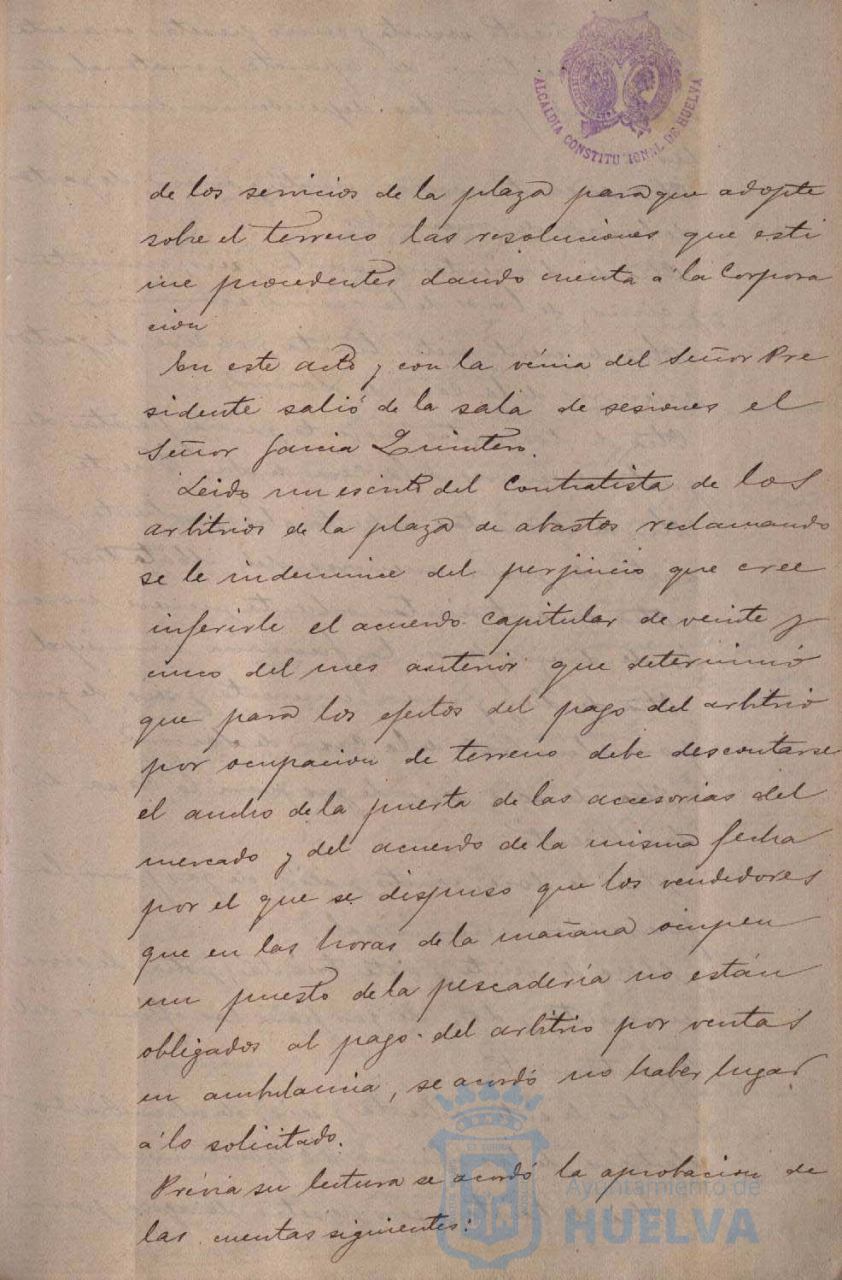 ALCALDIA CONSTITUCIONAL DE HUELVA
de los servicios de la plaza para que adopte
sobre el terreno las resoluciones que esti
me procedentes dando cuenta á la Corpora
cion
En este acto y con la vénia del Señor Pre
sidente salió de la sala de sesiones el
Señor Garcia Quintero.
Leido un escrito del Contratista de los
arbitrios de la plaza de abastos reclamando
se le indemnice del perjuicio que cree
inferirle el acuerdo capitular de veinte y
uno del mes anterior que determinó
que para los efectos del pago del arbitrio
por ocupacion de terreno debe descontarse
el ancho de la puerta de las accesorias del
mercado y del acuerdo de la misma fecha
por el que se dispuso que los vendedores
que en las horas de la mañana ocupen
un puesto de la pescadería no están
obligados al pago del arbitrio por ventas
en ambulancia, se acordó no haber lugar
á lo solicitado.
Prévia su lectura se acordó la aprobacion de
las cuentas siguientes:
Ayuntamiento de
HUELVA